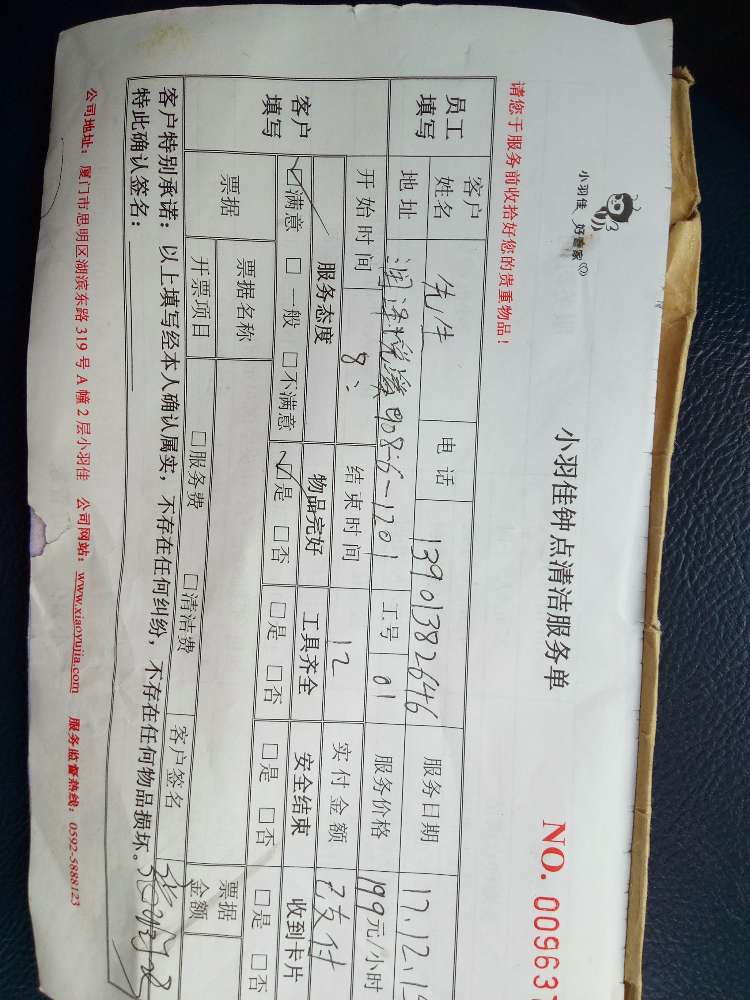 小羽佳 好管家
小羽佳钟点清洁服务单
请您于服务前收拾好您的贵重物品！
NO. 00963
员工填写
客户姓名 先生 电话 13901382646 服务日期 17.12.1
地址 908-6-1201 工号 01 服务价格 199元/小时
开始时间 8: 结束时间 12 实付金额 已支付
客户填写
服务态度 物品完好 工具齐全 安全结束 收到卡片
☑满意 □一般 □不满意 ☑是 □否 □是 □否 □是 □否 □是 □否
票据 票据名称 票据金额
开票项目 □服务费 □清洁费 客户签名
客户特别承诺：以上填写经本人确认属实，不存在任何纠纷，不存在任何物品损坏。
特此确认签名：
公司地址：厦门市思明区湖滨东路 319 号 A 幢 2 层小羽佳 公司网站：www.xiaoyujia.com 服务监督热线：0592-5888123